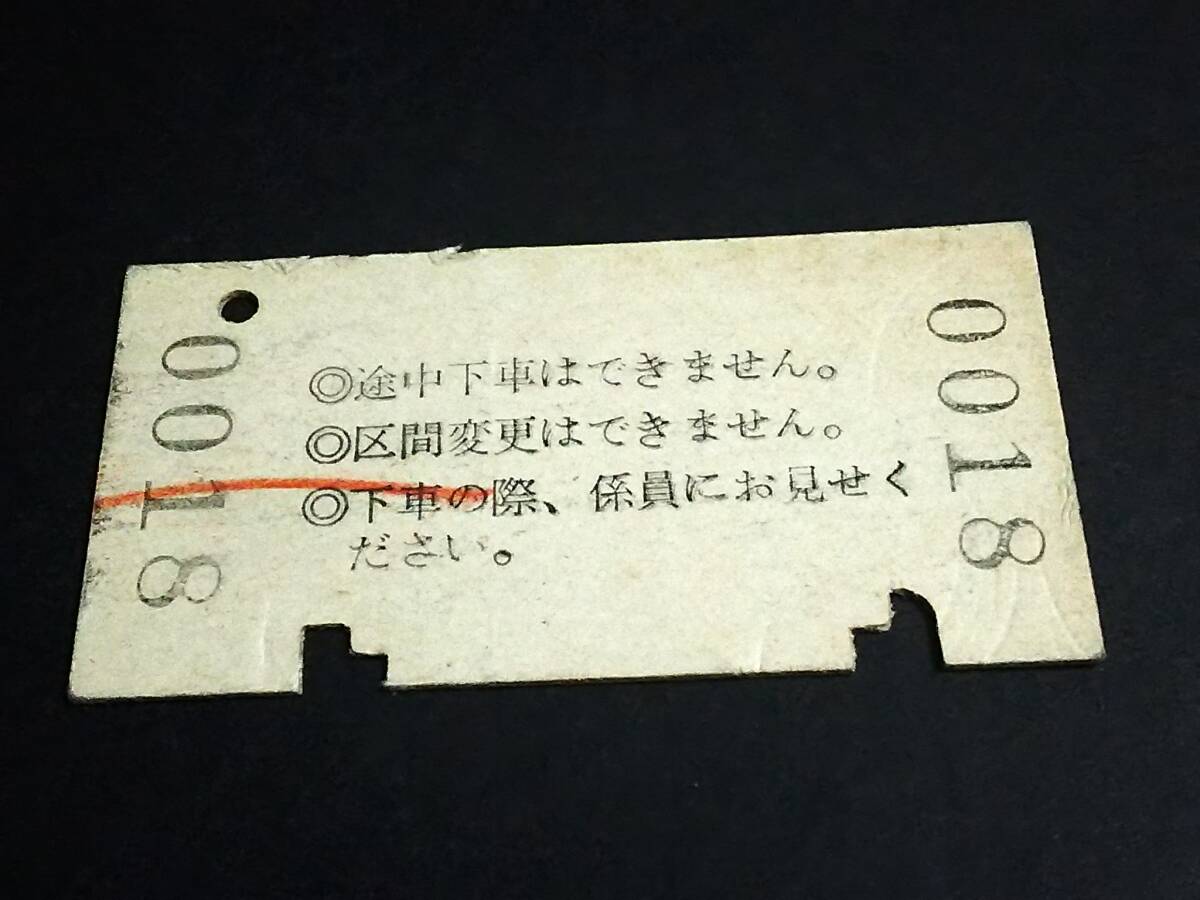 0018
◎途中下車はできません。
◎区間変更はできません。
◎下車の際、係員にお見せく
ださい。
0018